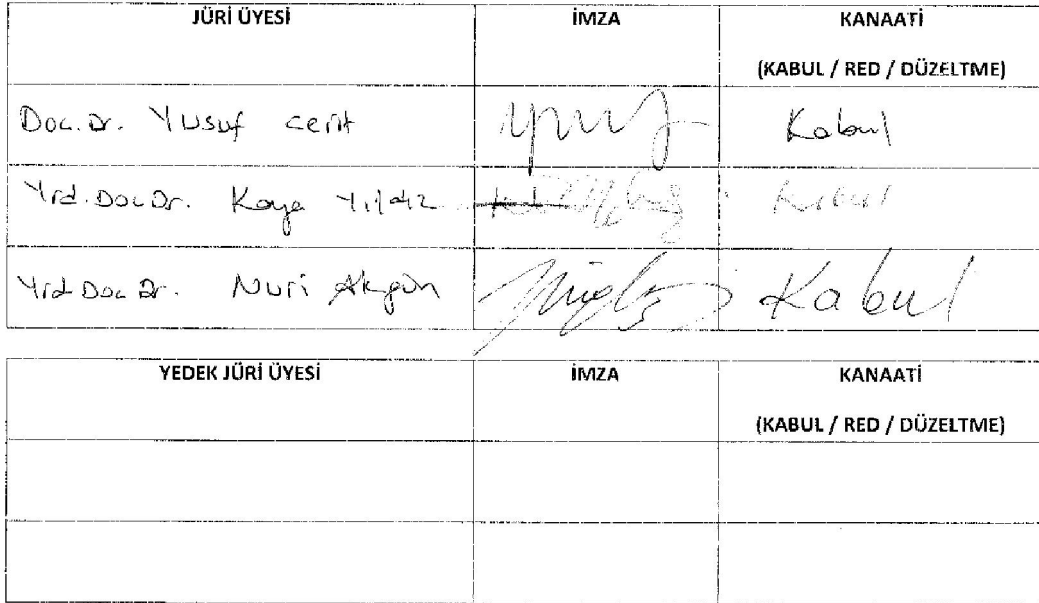 JÜRİ ÜYESİ İMZA KANAATİ
(KABUL / RED / DÜZELTME)
Doç. Dr. Yusuf Cerit Kabul
Yrd. Doç Dr. Kaya Yıldız
Yrd Doç Dr. Nuri Akgün Kabul
YEDEK JÜRİ ÜYESİ İMZA KANAATİ
(KABUL / RED / DÜZELTME)